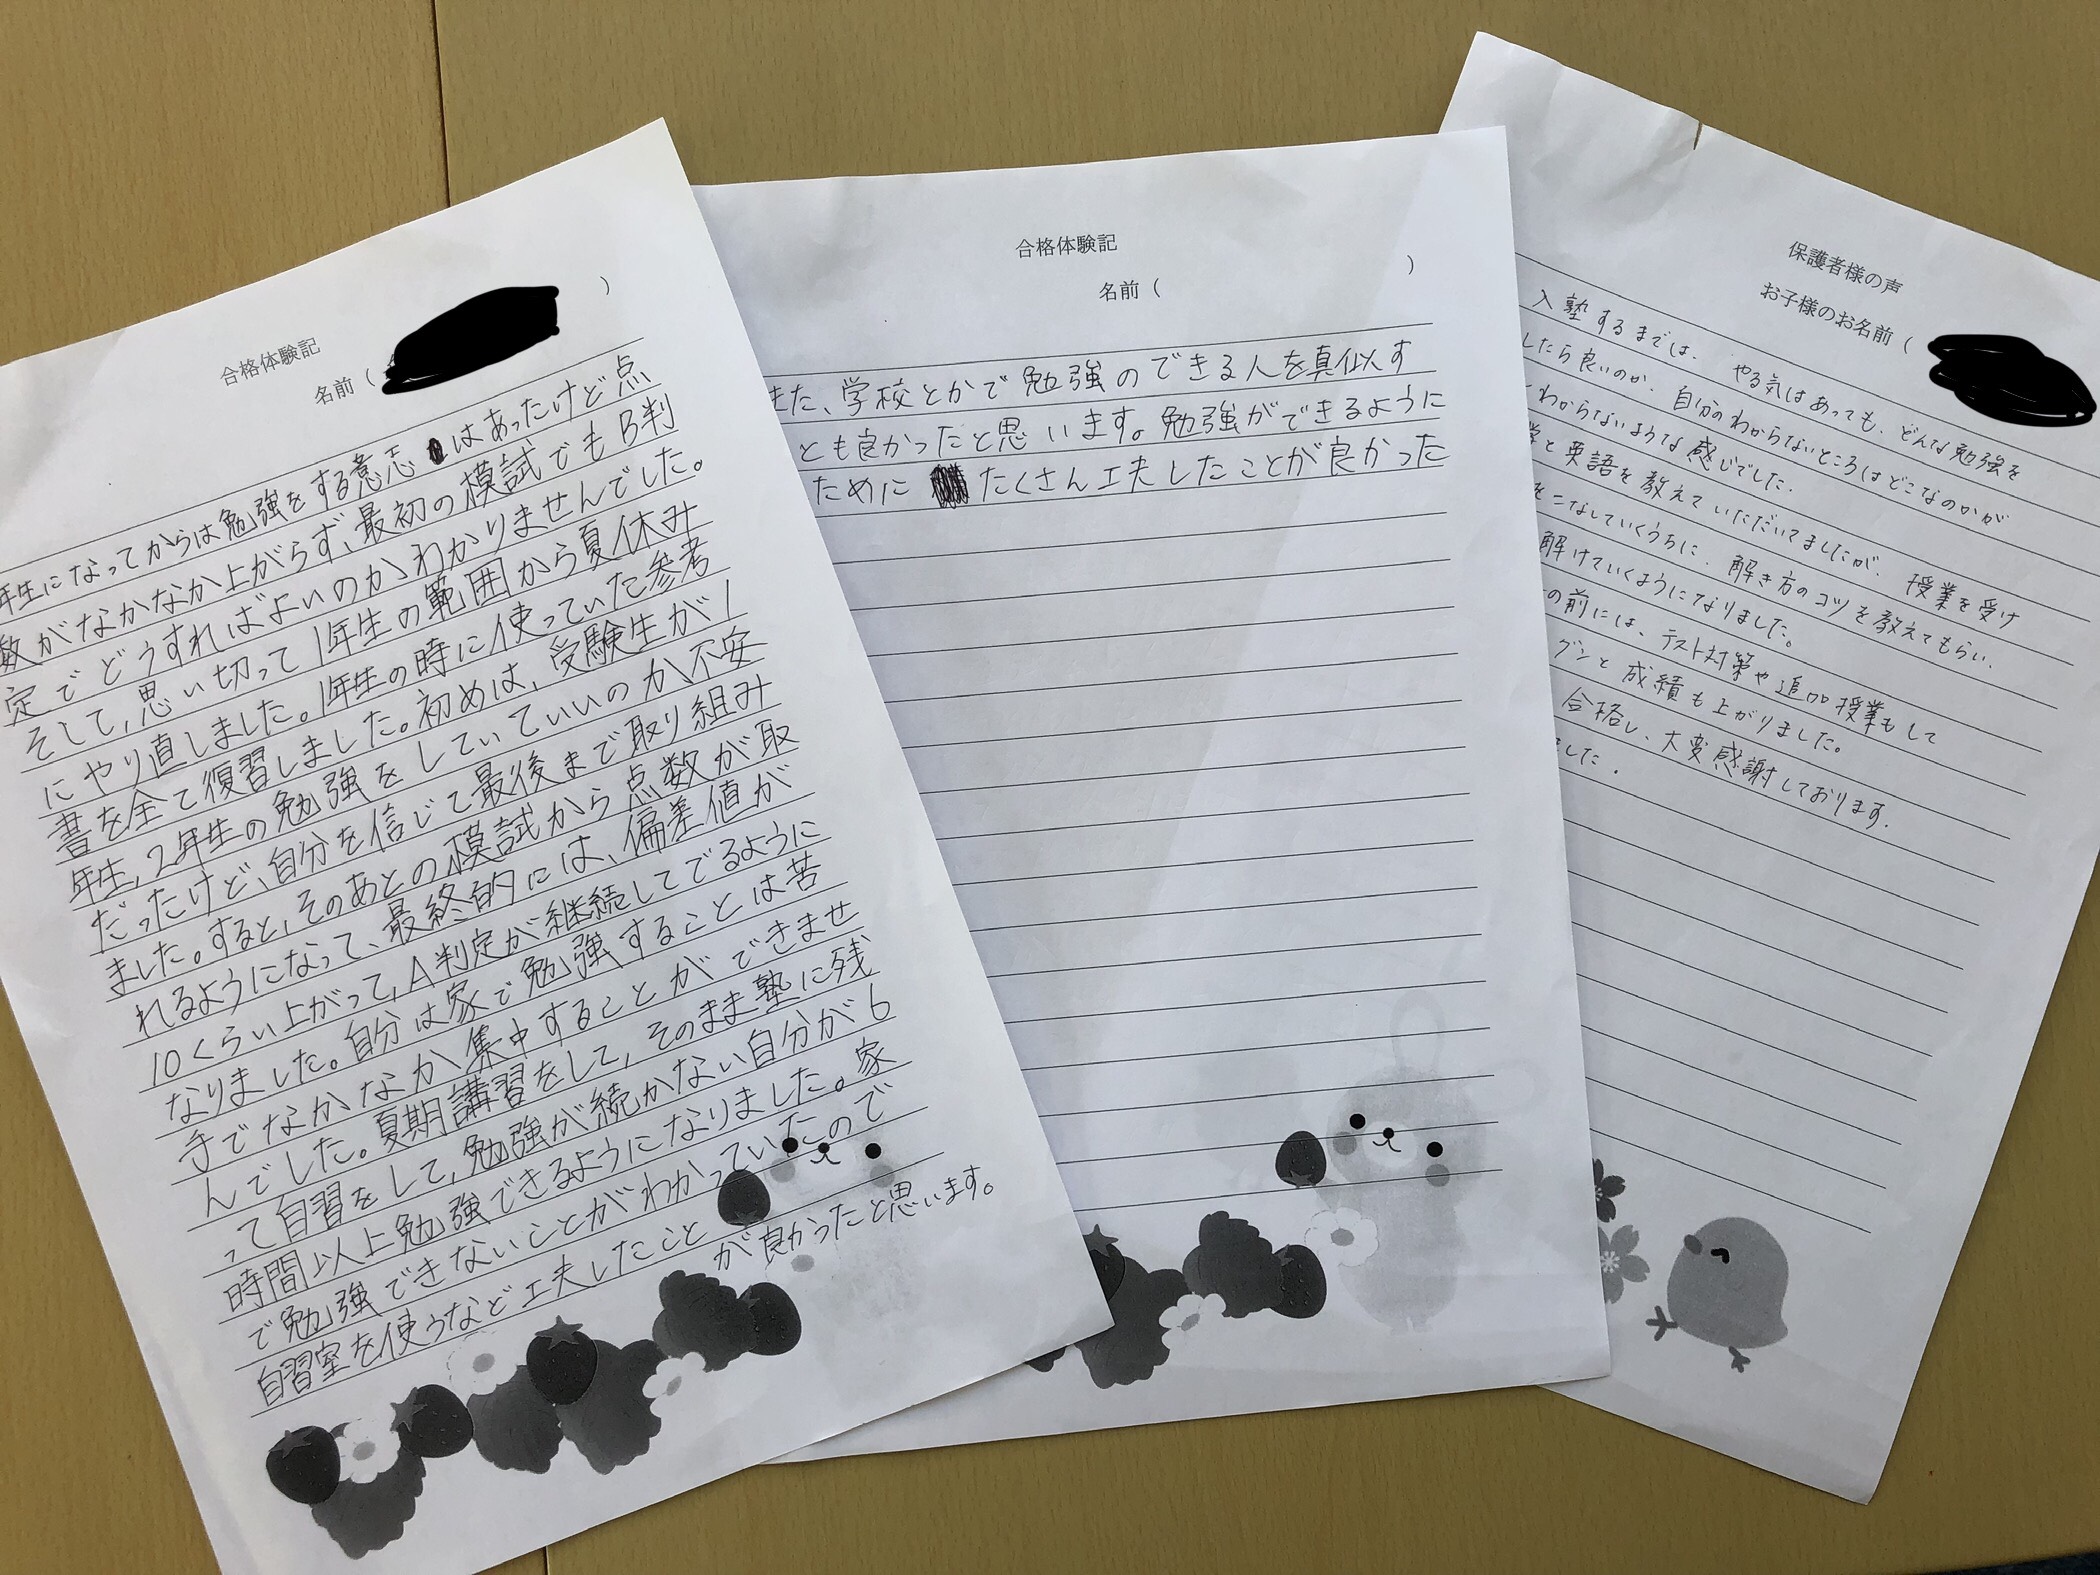 合格体験記
名前（ ）
年生になってからは勉強をする意志はあったけど点
数がなかなか上がらず、最初の模試でもB判
定でどうすればよいのかわかりませんでした。
そして、思い切って1年生の範囲から夏休み
にやり直しました。1年生の時に使っていた参考
書を全て復習しました。初めは、受験生が1
年生、2年生の勉強をしていていいのか不安
だったけど、自分を信じて最後まで取り組み
ました。すると、そのあとの模試から点数が取
れるようになって、最終的には、偏差値が
10くらい上がって、A判定が継続してでるように
なりました。自分は家で勉強することは苦
手でなかなか集中することができませ
んでした。夏期講習をして、そのまま塾に残
って自習をして、勉強が続かない自分が6
時間以上勉強できるようになりました。家
で勉強できないことがわかっていたので
自習室を使うなど工夫したこと
が良かったと思います。
合格体験記
名前（ ）
また、学校とかで勉強のできる人を真似す
とも良かったと思います。勉強ができるように
ために たくさん工夫したことが良かった
保護者様の声
お子様のお名前（
入塾するまでは、やる気はあっても、どんな勉強を
したら良いのか、自分のわからないところはどこなのかが
わからないような感じでした。
と英語を教えていただいてましたが、授業を受け
をこなしていくうちに、解き方のコツを教えてもらい、
解けていくようになりました。
の前には、テスト対策や追加授業もして
グンと成績も上がりました。
合格し、大変感謝しております。
ました。